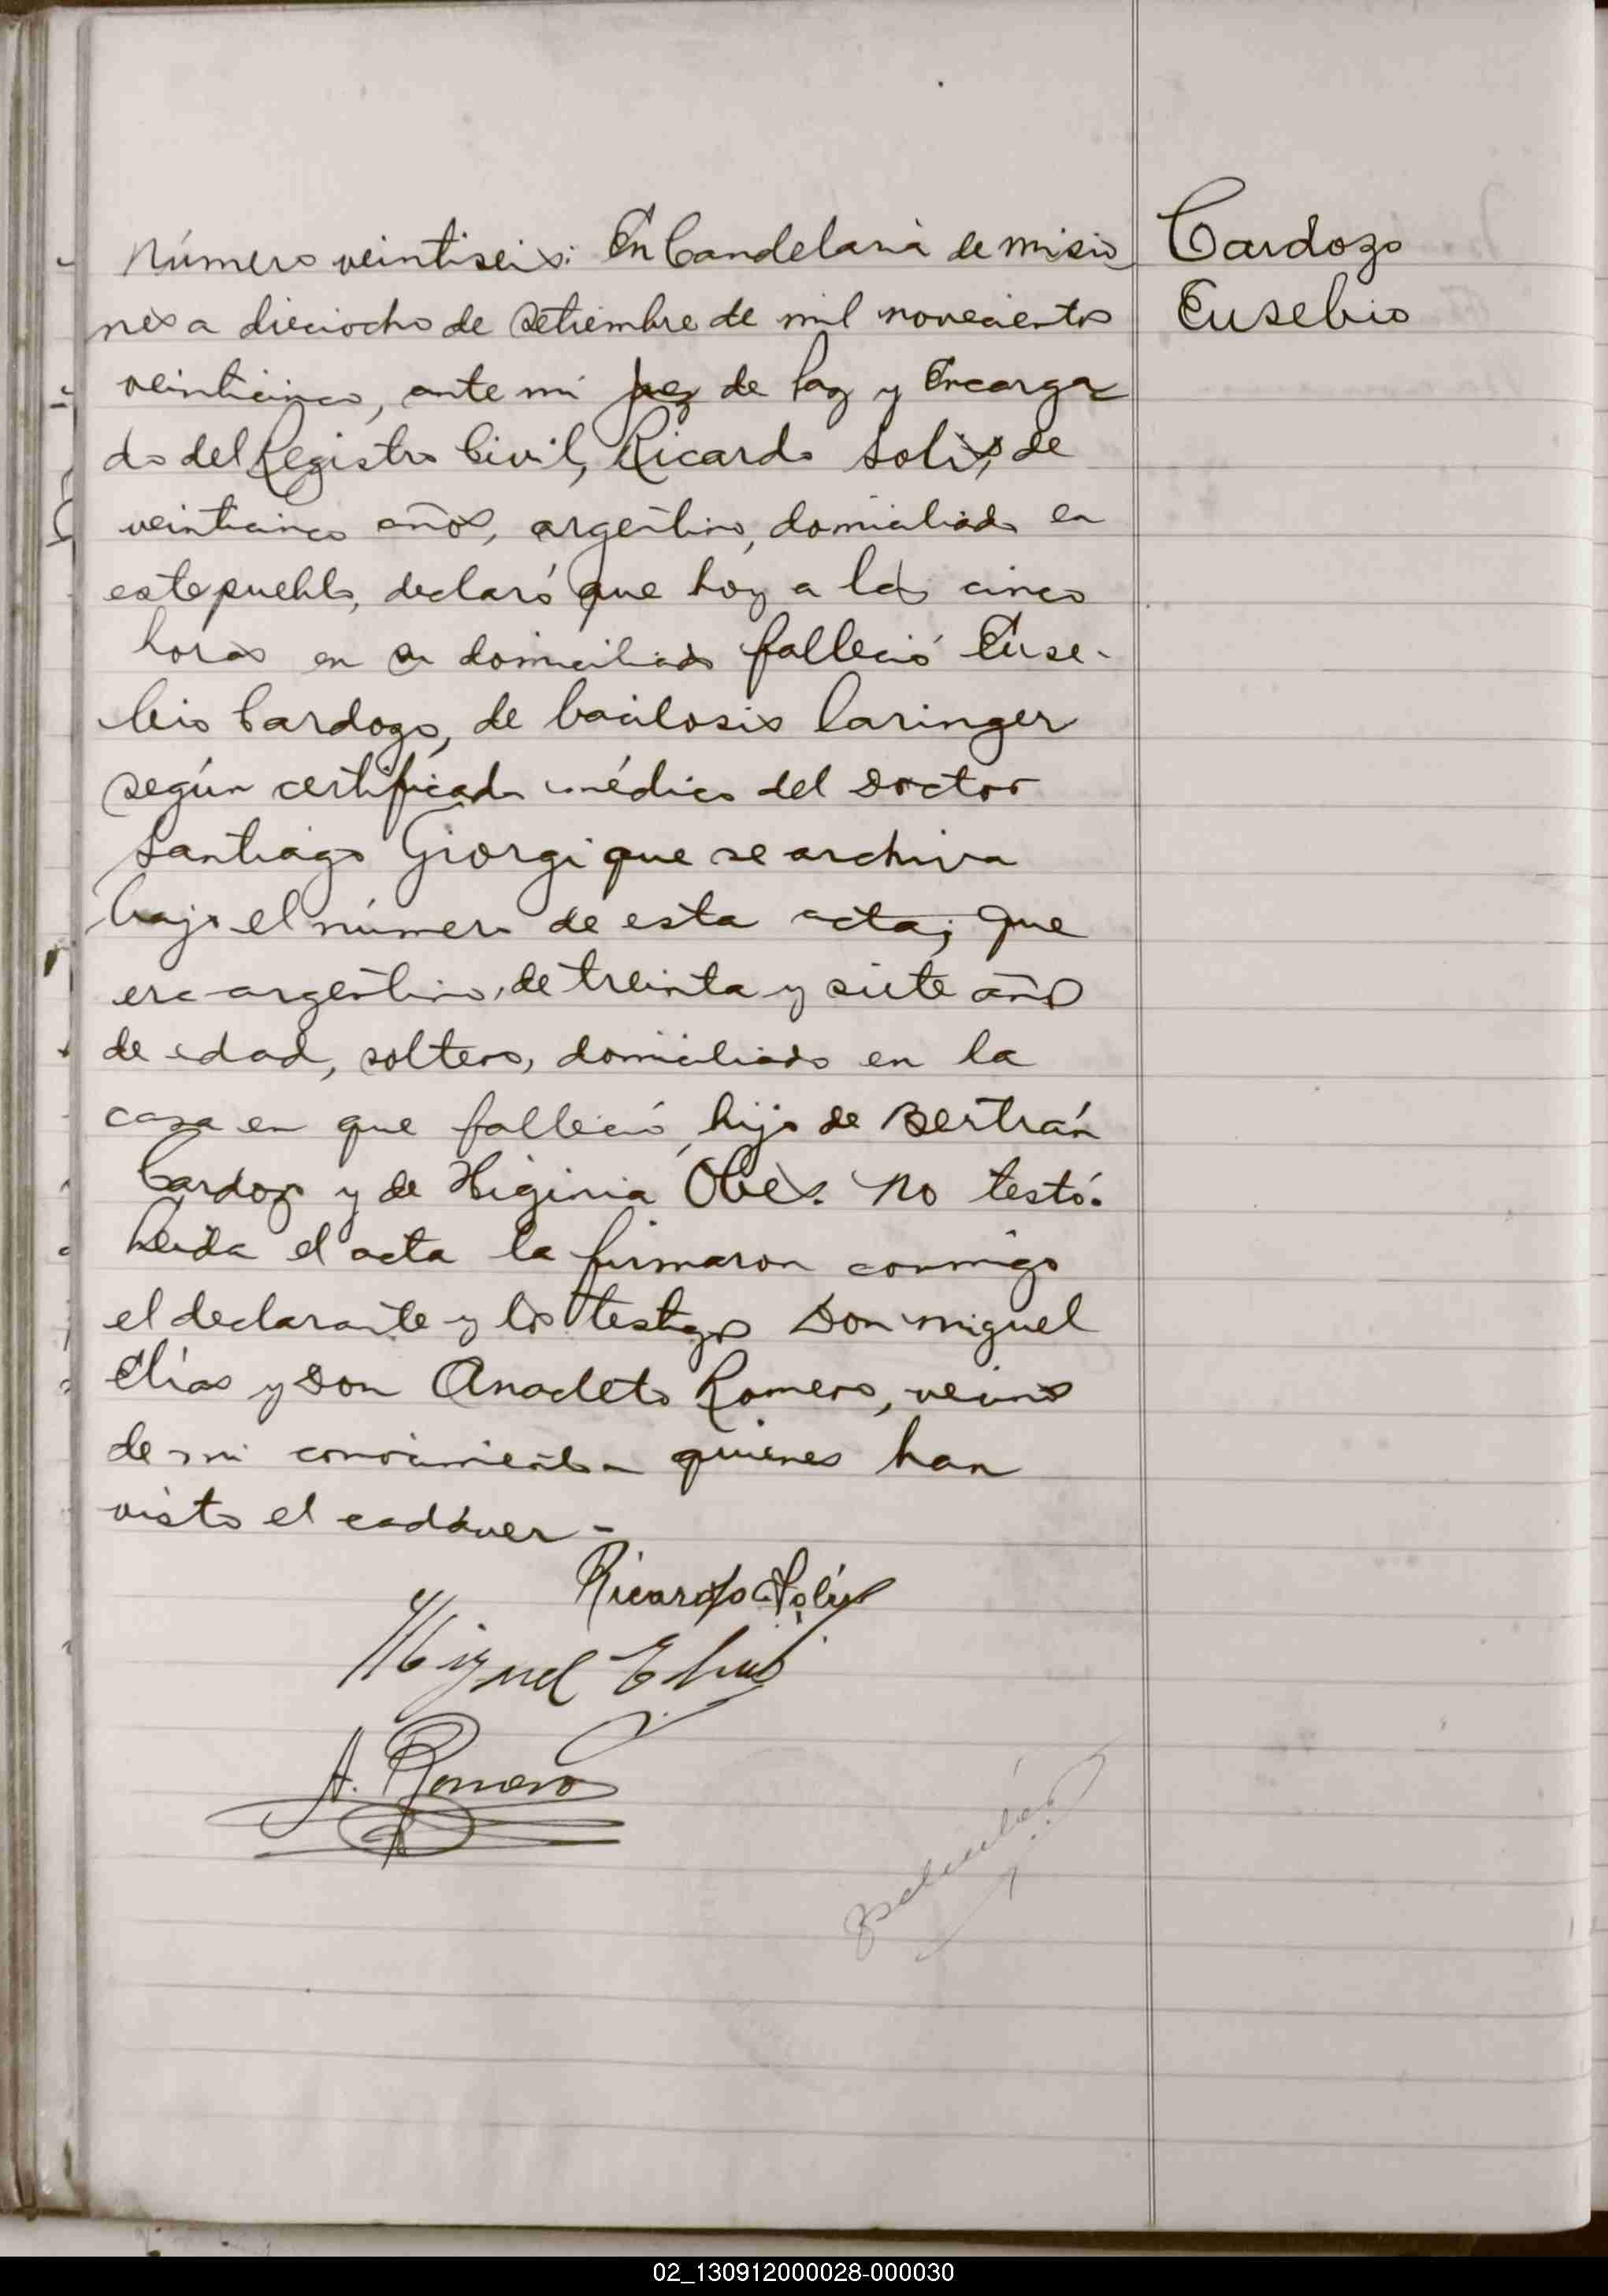 Cardozo
Eusebio
Número veintiseis: En Candelaria de Misio
nes a dieciocho de Setiembre de mil novecientos
veinticinco, ante mi Juez de Paz y Encarga
do del Registro Civil, Ricardo Solis, de
veinticinco años, argentino, domiciliado en
este pueblo, declaró que hoy a las cinco
horas en su domiciliado falleció Euse-
bio Cardozo, de bacilosis laringea
según certificado médico del Doctor
Santiago Giorgi que se archiva
bajo el número de esta acta; que
era argentino, de treinta y siete años
de edad, soltero, domiciliado en la
casa en que falleció, hijo de Bertrán
Cardozo y de Higinia Obes. No testó.
Leida el acta la firmaron conmigo
el declarante y los testigos Don Miguel
Elías y Don Anacleto Romero, vecinos
de mi conocimiento quienes han
visto el cadáver -
Ricardo Solis
Miguel Elias
A. Romero
02_130912000028-000030